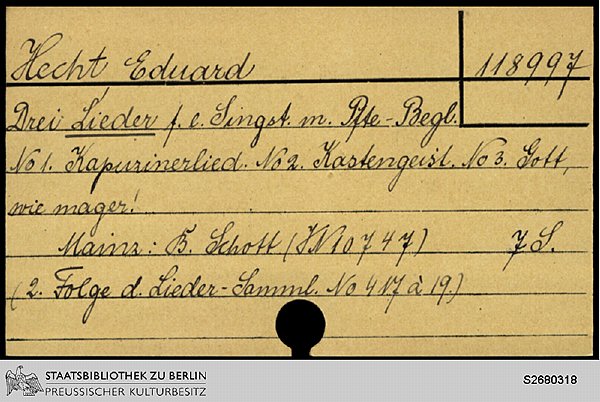 Hecht, Eduard
118997
Drei Lieder f. e. Singst. m. Pfte-Begl.
No 1. Kapuzinerlied. No 2. Kastengeist. No 3. Gott,
wie mager!
Mainz: B. Schott (VN10747) 7 S.
(2. Folge d. Lieder-Samml. No 417 à 19.)
STAATSBIBLIOTHEK ZU BERLIN
PREUSSISCHER KULTURBESITZ
S2680318